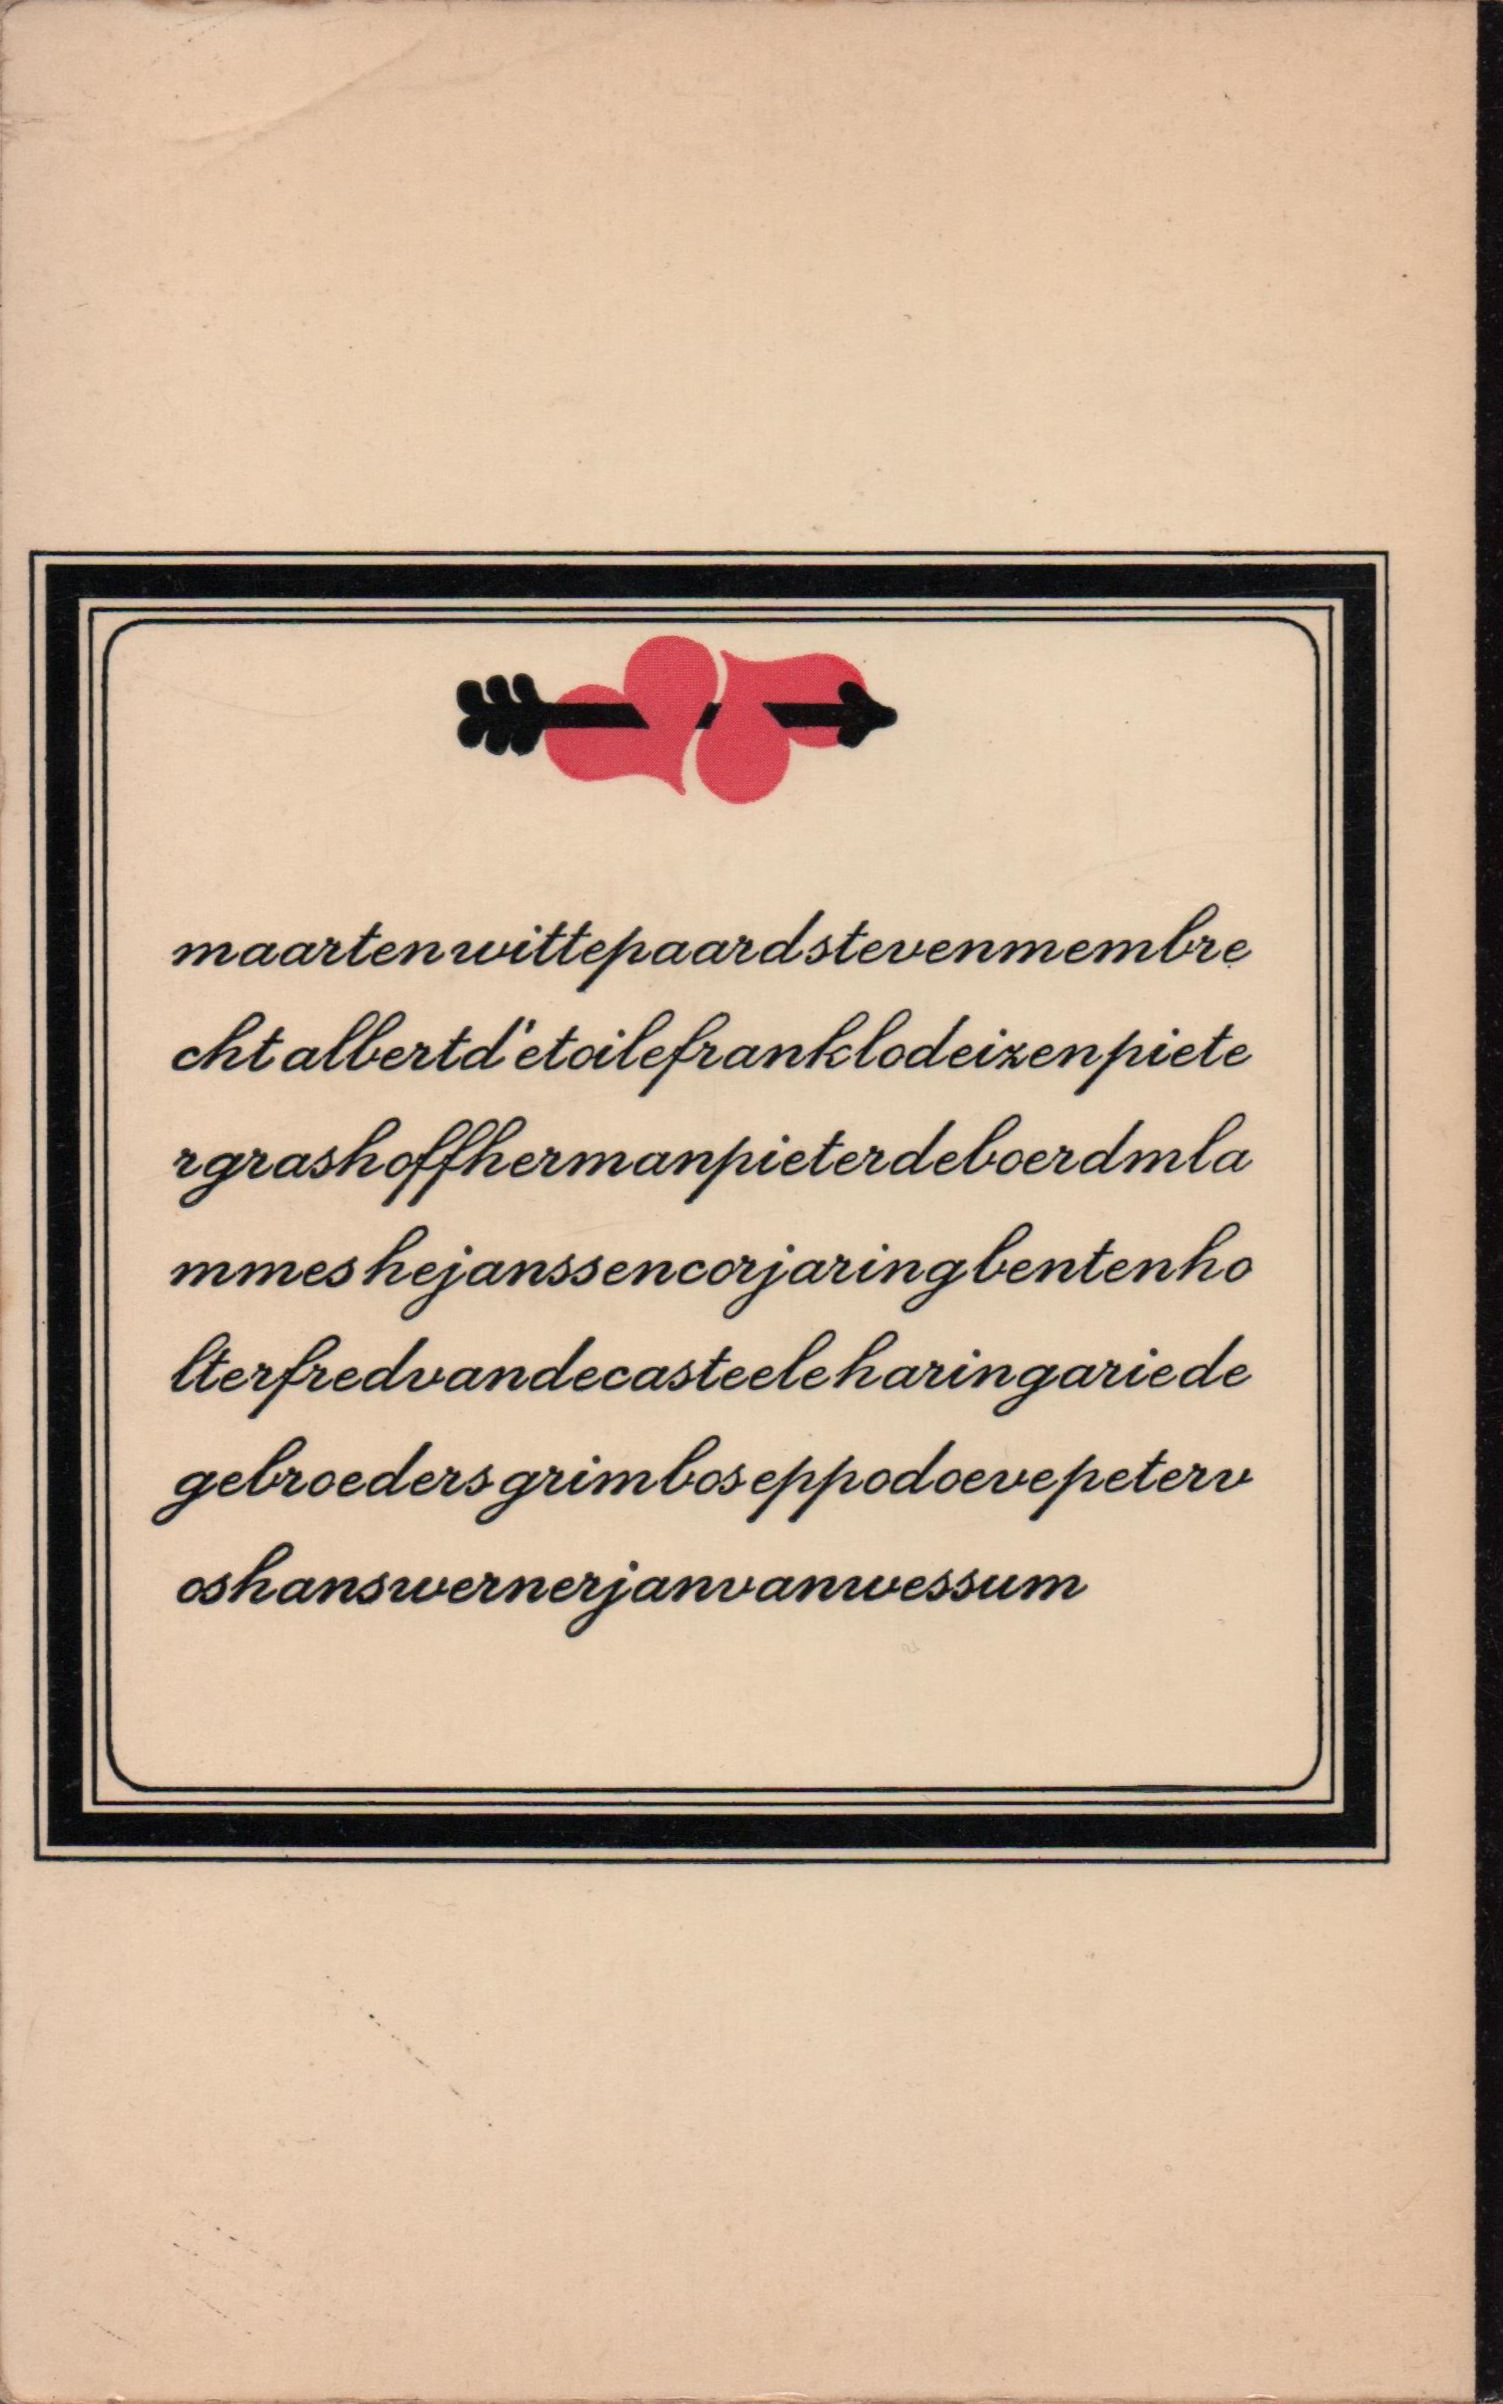 maartenwittepaardstevenmembre
chtalbertd'etoilefranklodeizenpiete
rgrashoffhermanpieterdeboerdmla
mmeshejanssencorjaringbentenho
lterfredvandecasteeleharingariede
gebroedersgrimboseppodoevepeterv
oshanswernerjanvanwessum